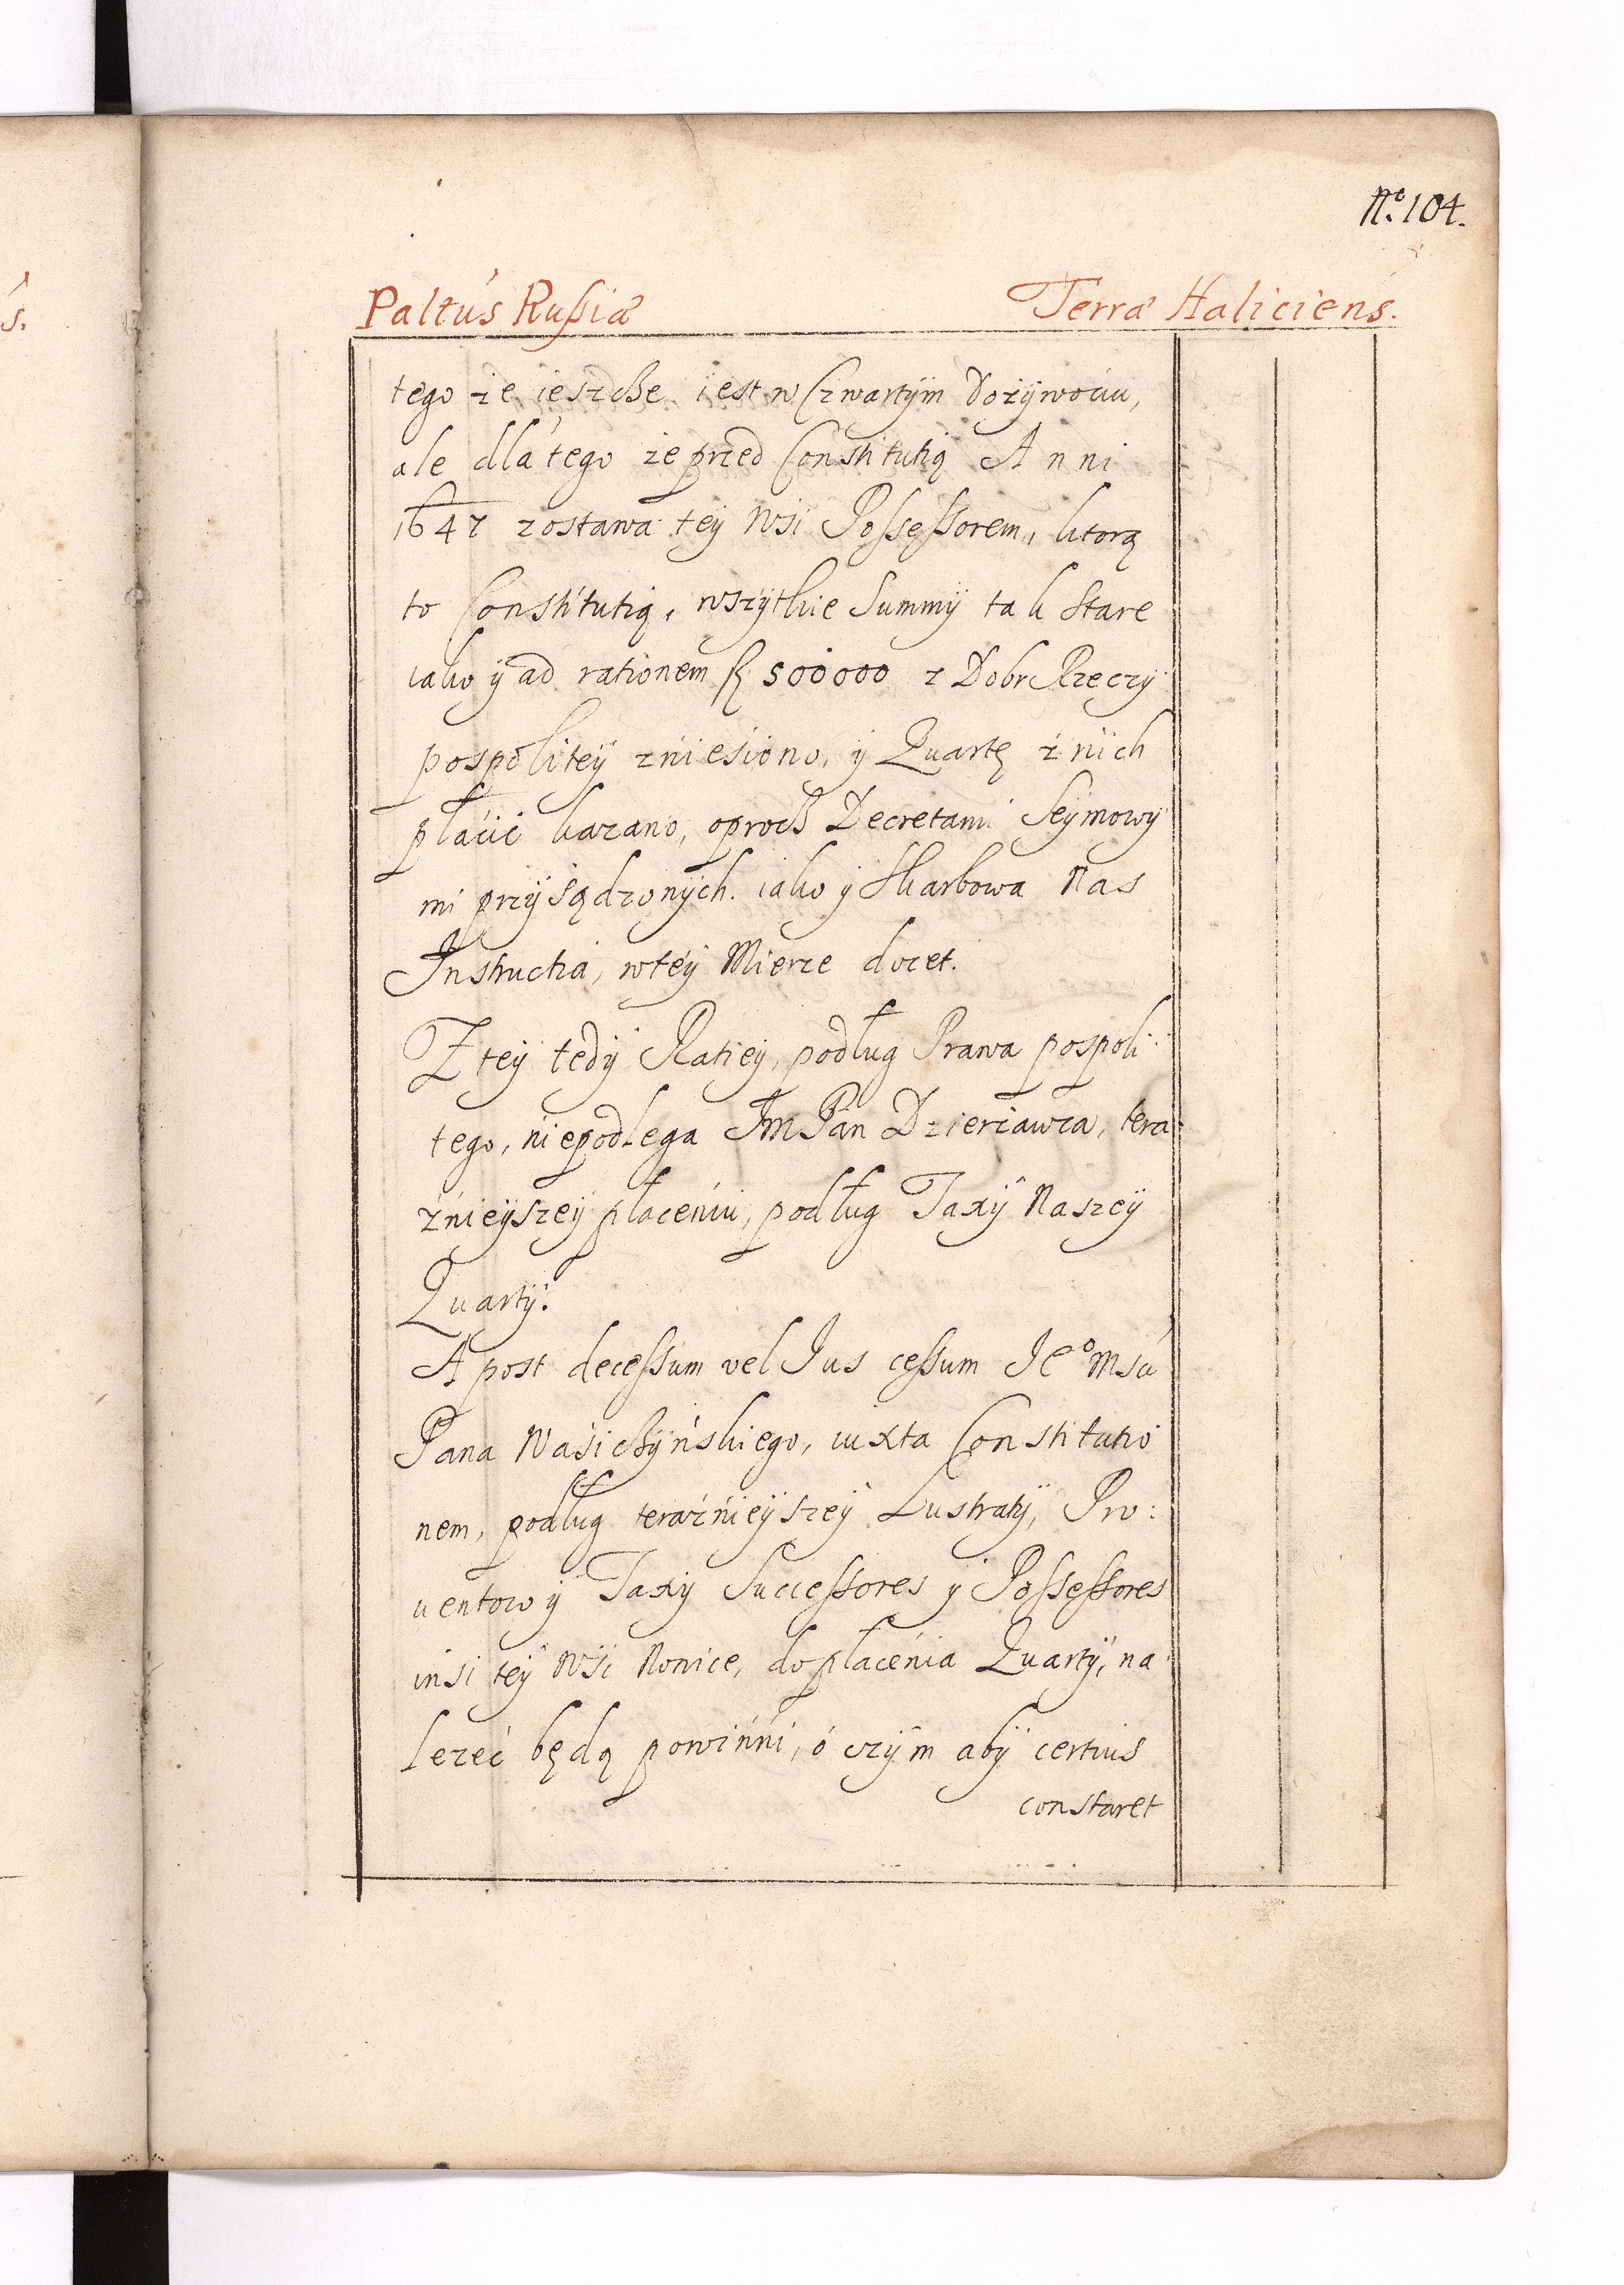 No. 104.
Paltús Rußiæ Terræ Haliciens.
tego że ieszcze iest w Czwartÿm Dożÿwociu,
ale dla tego że przed Constitutią Anni
1647 zostawa teÿ Wsi Poßeßorem, ktorą
to Constitutią, wszÿtkie Summÿ tak Stare
iako ÿ ad rationem fl 500000 z Dobr Rzeczÿ
pospoliteÿ zniesiono, ÿ Quartę z nich
płacić kazano, oprocz Decretami Seÿmowÿ
mi przÿsądzonÿch. iako ÿ Skarbowa Nas
Instructia, wteÿ Mierze docet.
Z teÿ tedÿ Ratieÿ, podług Prawa pospoli:
tego, niepodlega Im Pan Dzierżawca, tera:
źnieÿszeÿ płaceniu, podług Taxÿ Naszeÿ
Quartÿ.
A post deceßum vel Ius ceßum Ieo Msći
Pana Wasiczÿńskiego, iuxta Constitutio
nem, podług teraźnieÿszeÿ Lustratÿ, Pro:
uentow ÿ Taxÿ Succeßores ÿ Poßeßores
insi teÿ Wsi Nowice, do płacenia Quartÿ, na:
leżeć będą powinni, ó czÿm abÿ certius
constaret